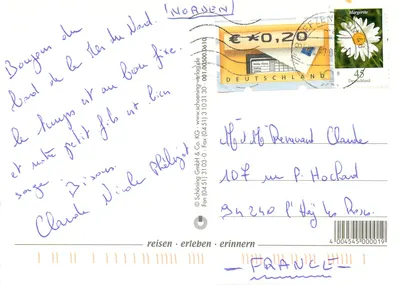 (NORDEN)
Bonjour du
bord de la Mer du Nord.
le temps est au beau fixe.
et notre petit fils est bien
sage. Bisous.
Claude Nicole
€*0,20
DEUTSCHLAND
Margerite
45
Deutschland
© Schöning GmbH & Co. KG · www.schoening-verlag.de
Fon (0451) 31 03-0 Fax (0451) 3 10 31 30 001.00500.3610
M & Mme Claude
107 rue P Hochart
94240 l'Haÿ les Roses
FRANCE
4 004545 000019
reisen · erleben · erinnern